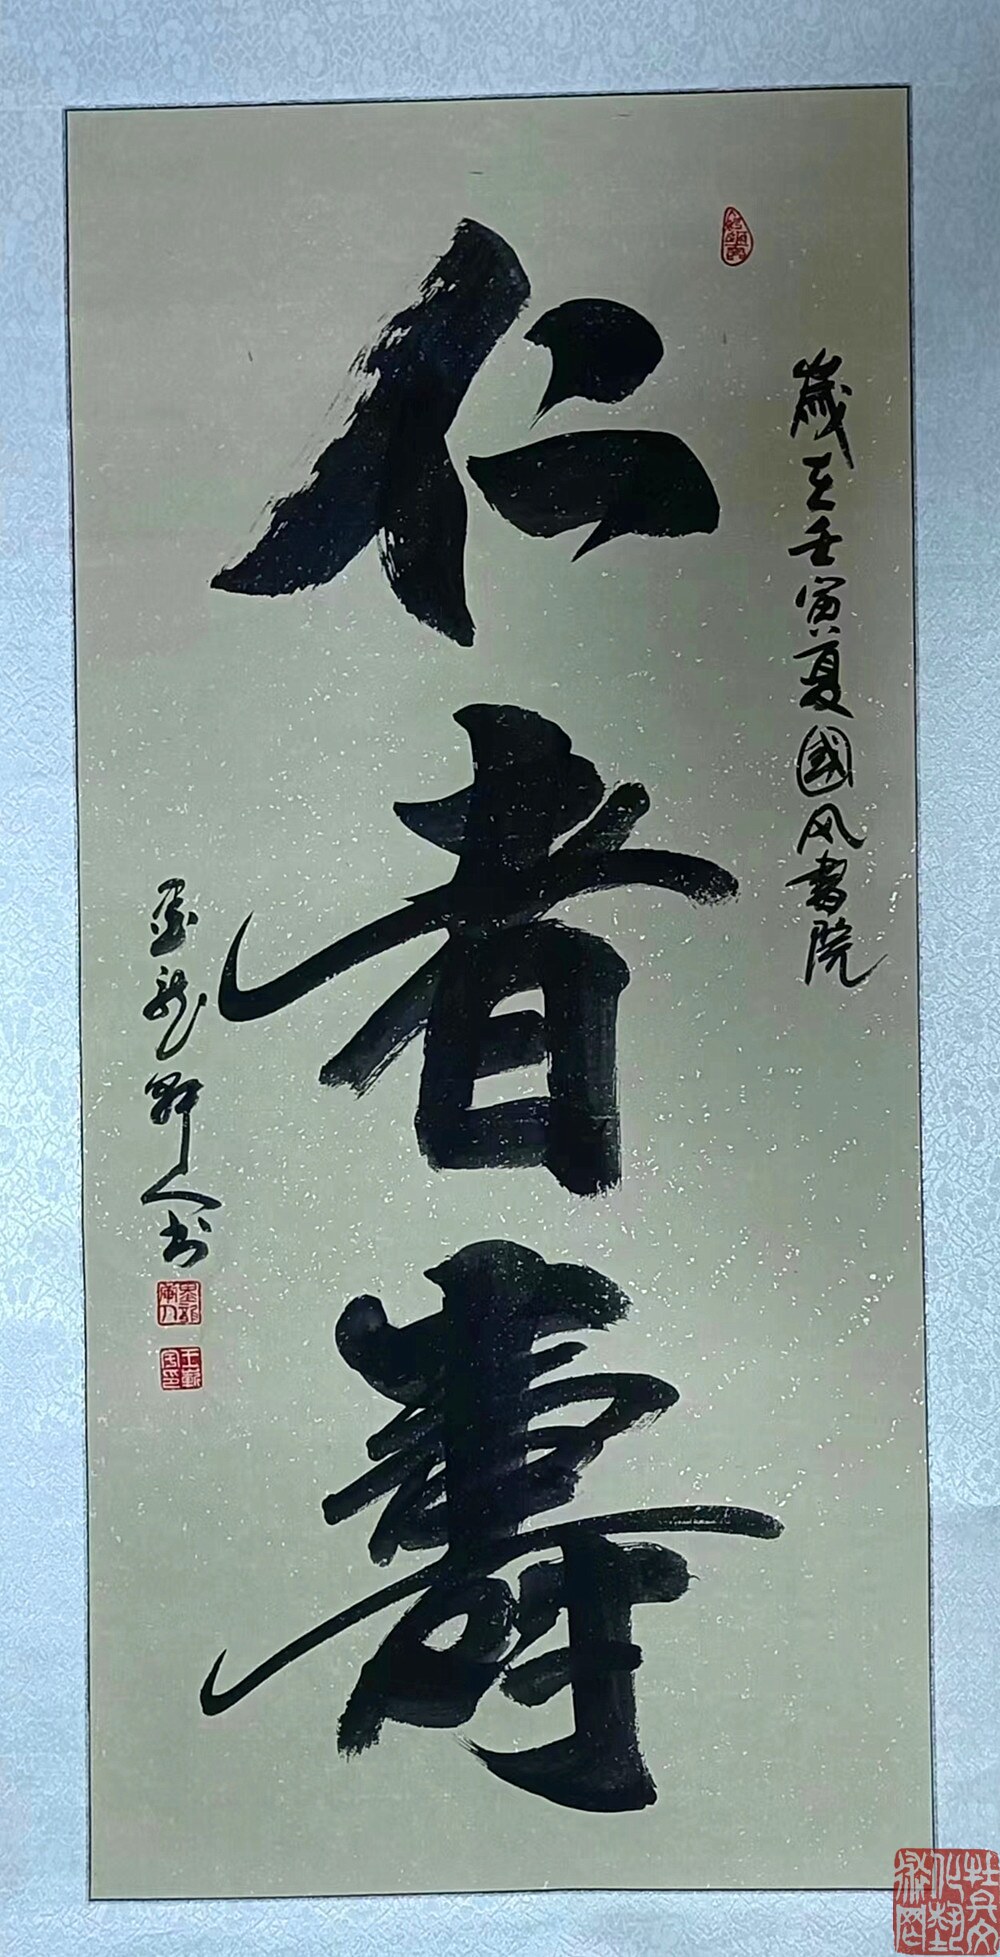 仁者壽
歲在壬寅夏國风書院
墨龙野人书